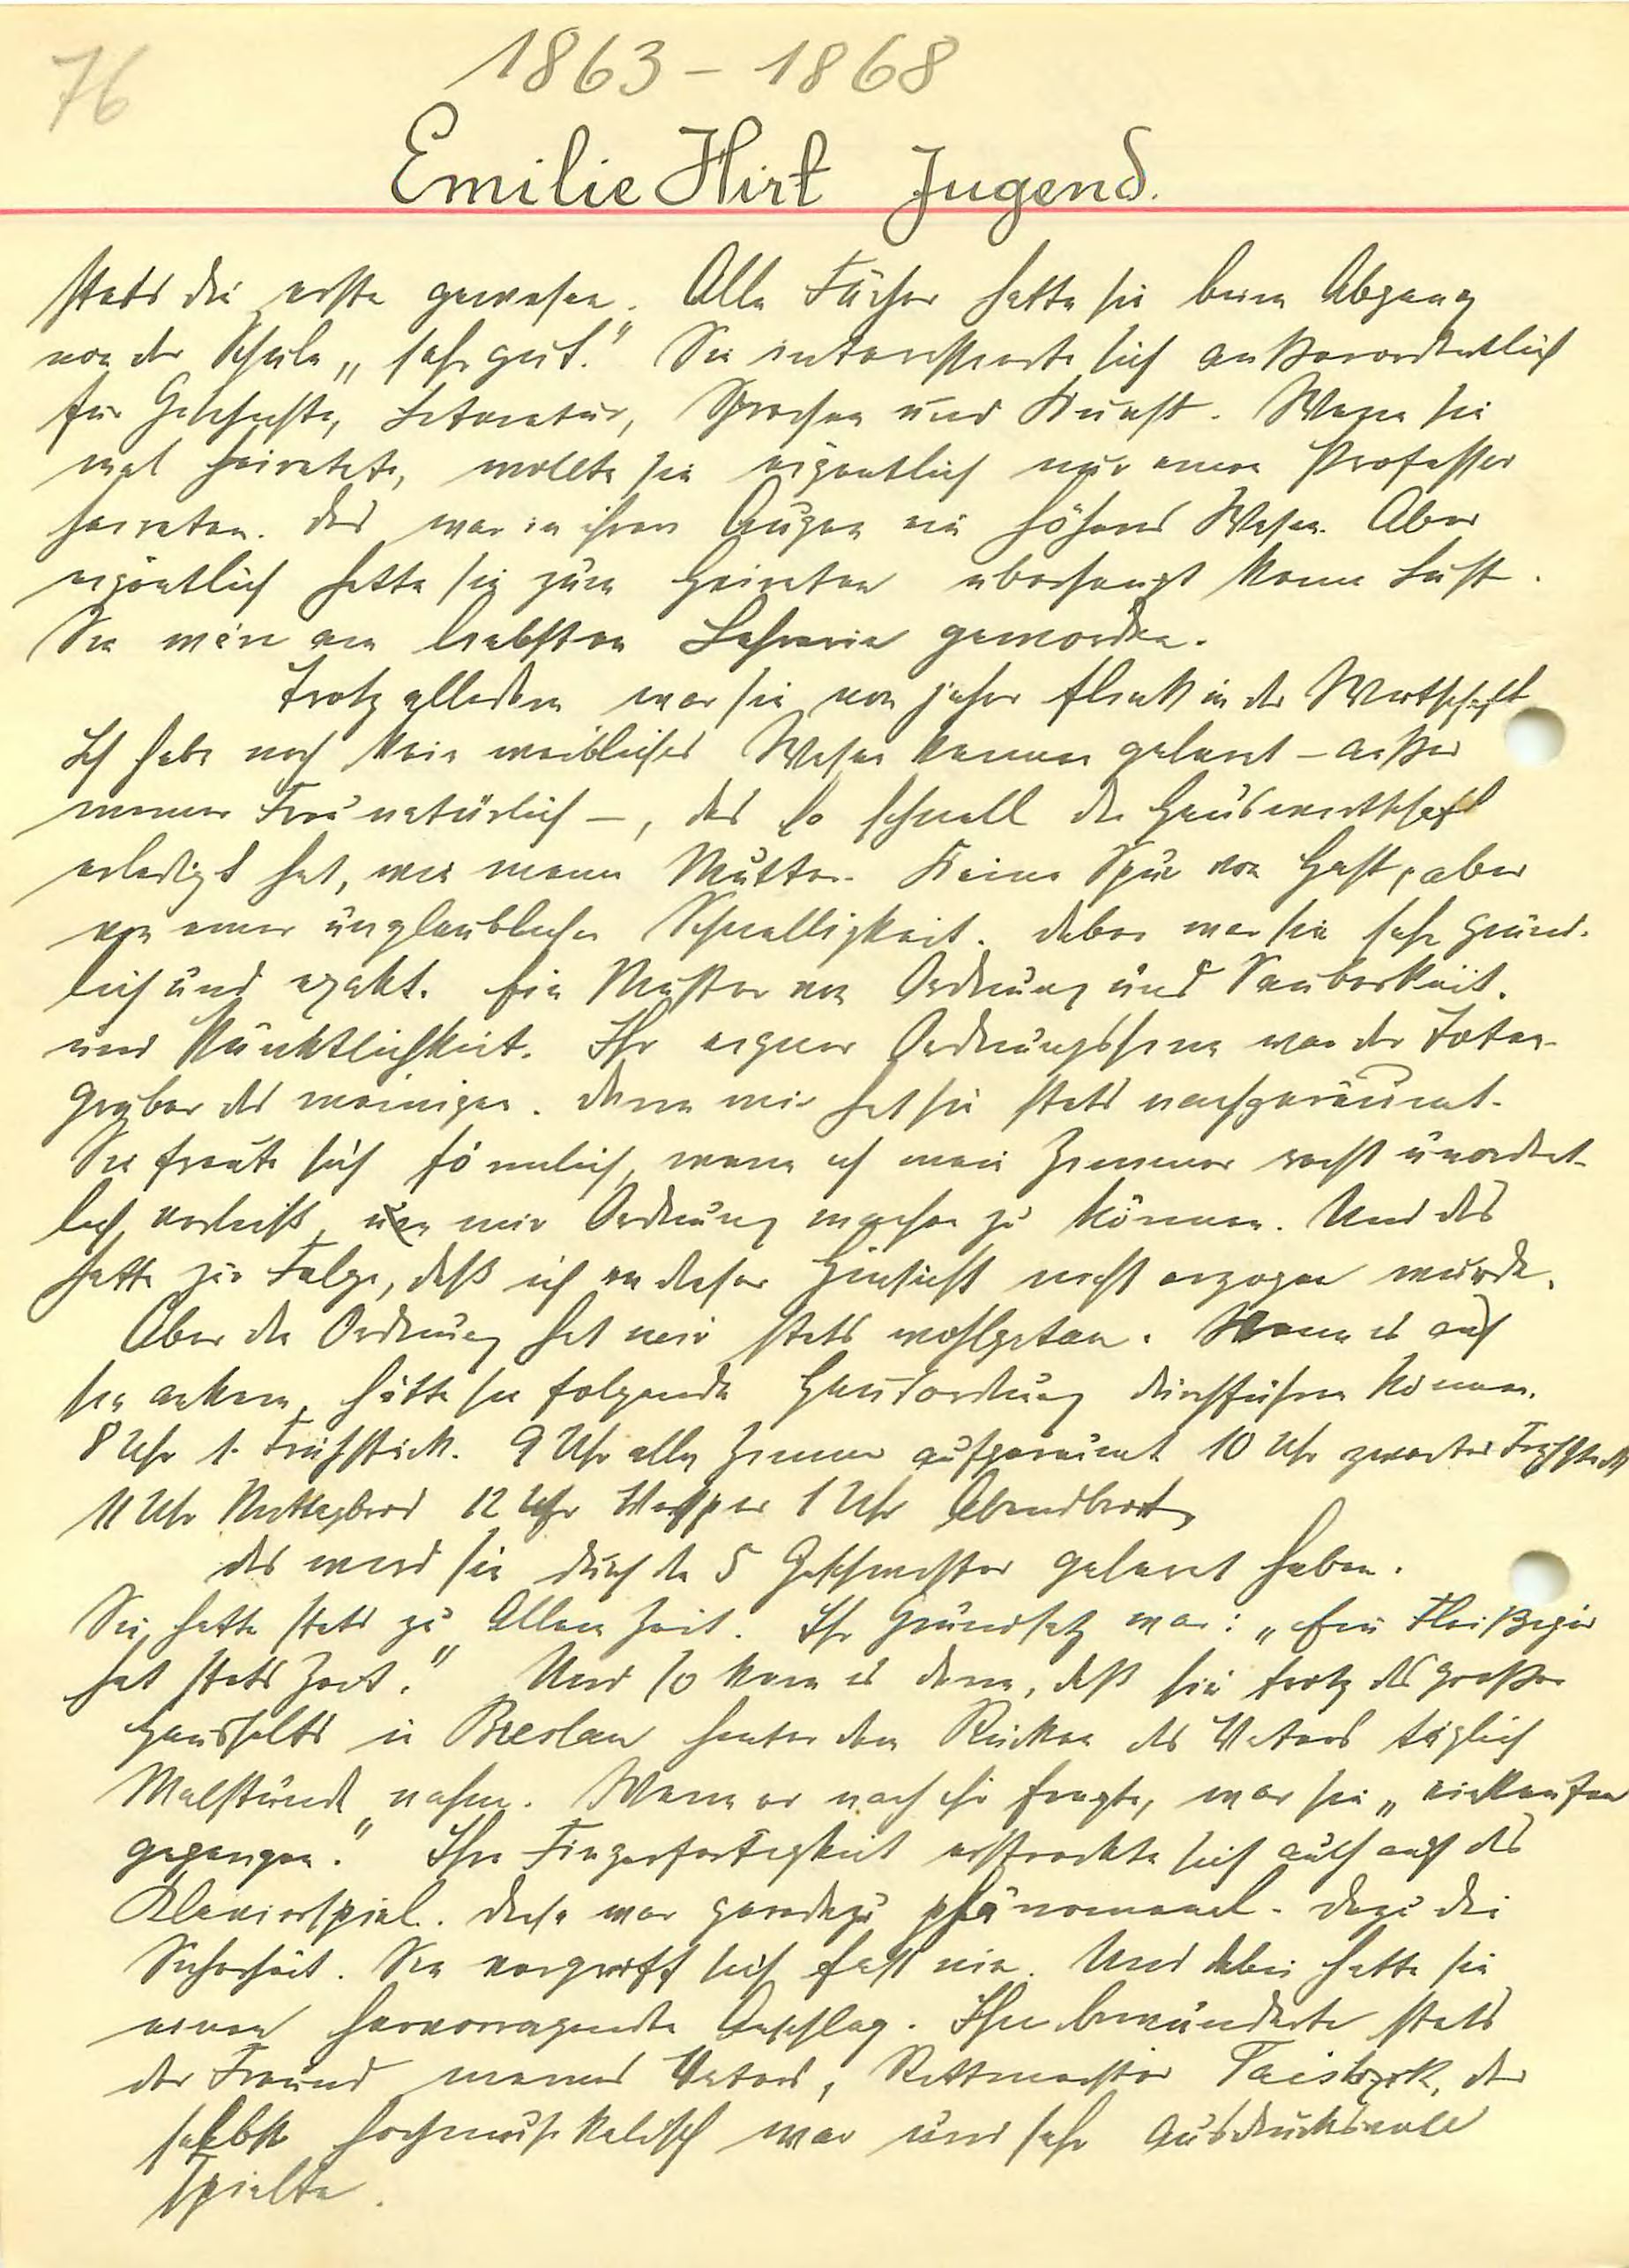 76
1863 – 1868
Emilie Hirt Jugend.
stets die erste gewesen. Alle Fächer hatte sie beim Abgang
von der Schule „sehr gut." Sie interessierte sich außerordentlich
für Geschichte, Literatur, Sprachen und Kunst. Wenn sie
mal heiratete, wollte sie eigentlich nur einen Professor
heiraten. Das war in ihren Augen ein höheres Wesen. Aber
eigentlich hatte sie zum Heiraten überhaupt keine Lust.
Sie wäre am liebsten Lehrerin geworden.
Trotz alledem war sie von jeher flink in der Wirtschaft
Ich habe noch kein weibliches Wesen kennen gelernt – außer
meiner Frau natürlich –, das so schnell die Hauswirtschaft
erledigt hat, wie meine Mutter. Keine Spur von Hast, aber
von einer unglaublichen Schnelligkeit. Dabei war sie sehr gründ-
lich und exakt. Ein Muster von Ordnung und Sauberkeit.
und Pünktlichkeit. Ihr eigener Ordnungssinn war der Toten-
gräber des meinigen. Denn mir hat sie stets nachgeräumt.
Sie freute sich förmlich, wenn ich mein Zimmer recht unordent-
lich verließ, um mir Ordnung machen zu können. Und das
hatte zur Folge, daß ich in dieser Hinsicht nicht erzogen wurde.
Aber die Ordnung hat mir stets wohlgetan. Wenn es auf
sie ankam, hätte sie folgende Hausordnung durchführen können.
8 Uhr 1. Frühstück. 9 Uhr alle Zimmer aufgeräumt 10 Uhr zweites Frühstück
11 Uhr Mittagbrod 12 Uhr Vesper 1 Uhr Abendbrot
das wird sie durch die 5 Geschwister gelernt haben.
Sie hatte stets zu „Allem Zeit." Ihr Grundsatz war: „Ein Fleißiger
hat stets Zeit." Und so kam es denn, daß sie trotz des großen
Haushalts in Breslau hinter dem Rücken des Vaters täglich
Malstunde nahm. Wenn er nach ihr fragte, war sie „einkaufen
gegangen." Ihre Fingerfertigkeit erstreckte sich auch auf das
Klavierspiel. Diese war geradezu phänomenal. Dazu die
Sicherheit. Sie vergriff sich fast nie. Und dabei hatte sie
einen hervorragenden Anschlag. Ihn bewunderte stets
der Freund meines Vaters, Rittmeister der
selbst hochmusikalisch war und sehr ausdrucksvoll
spielte.